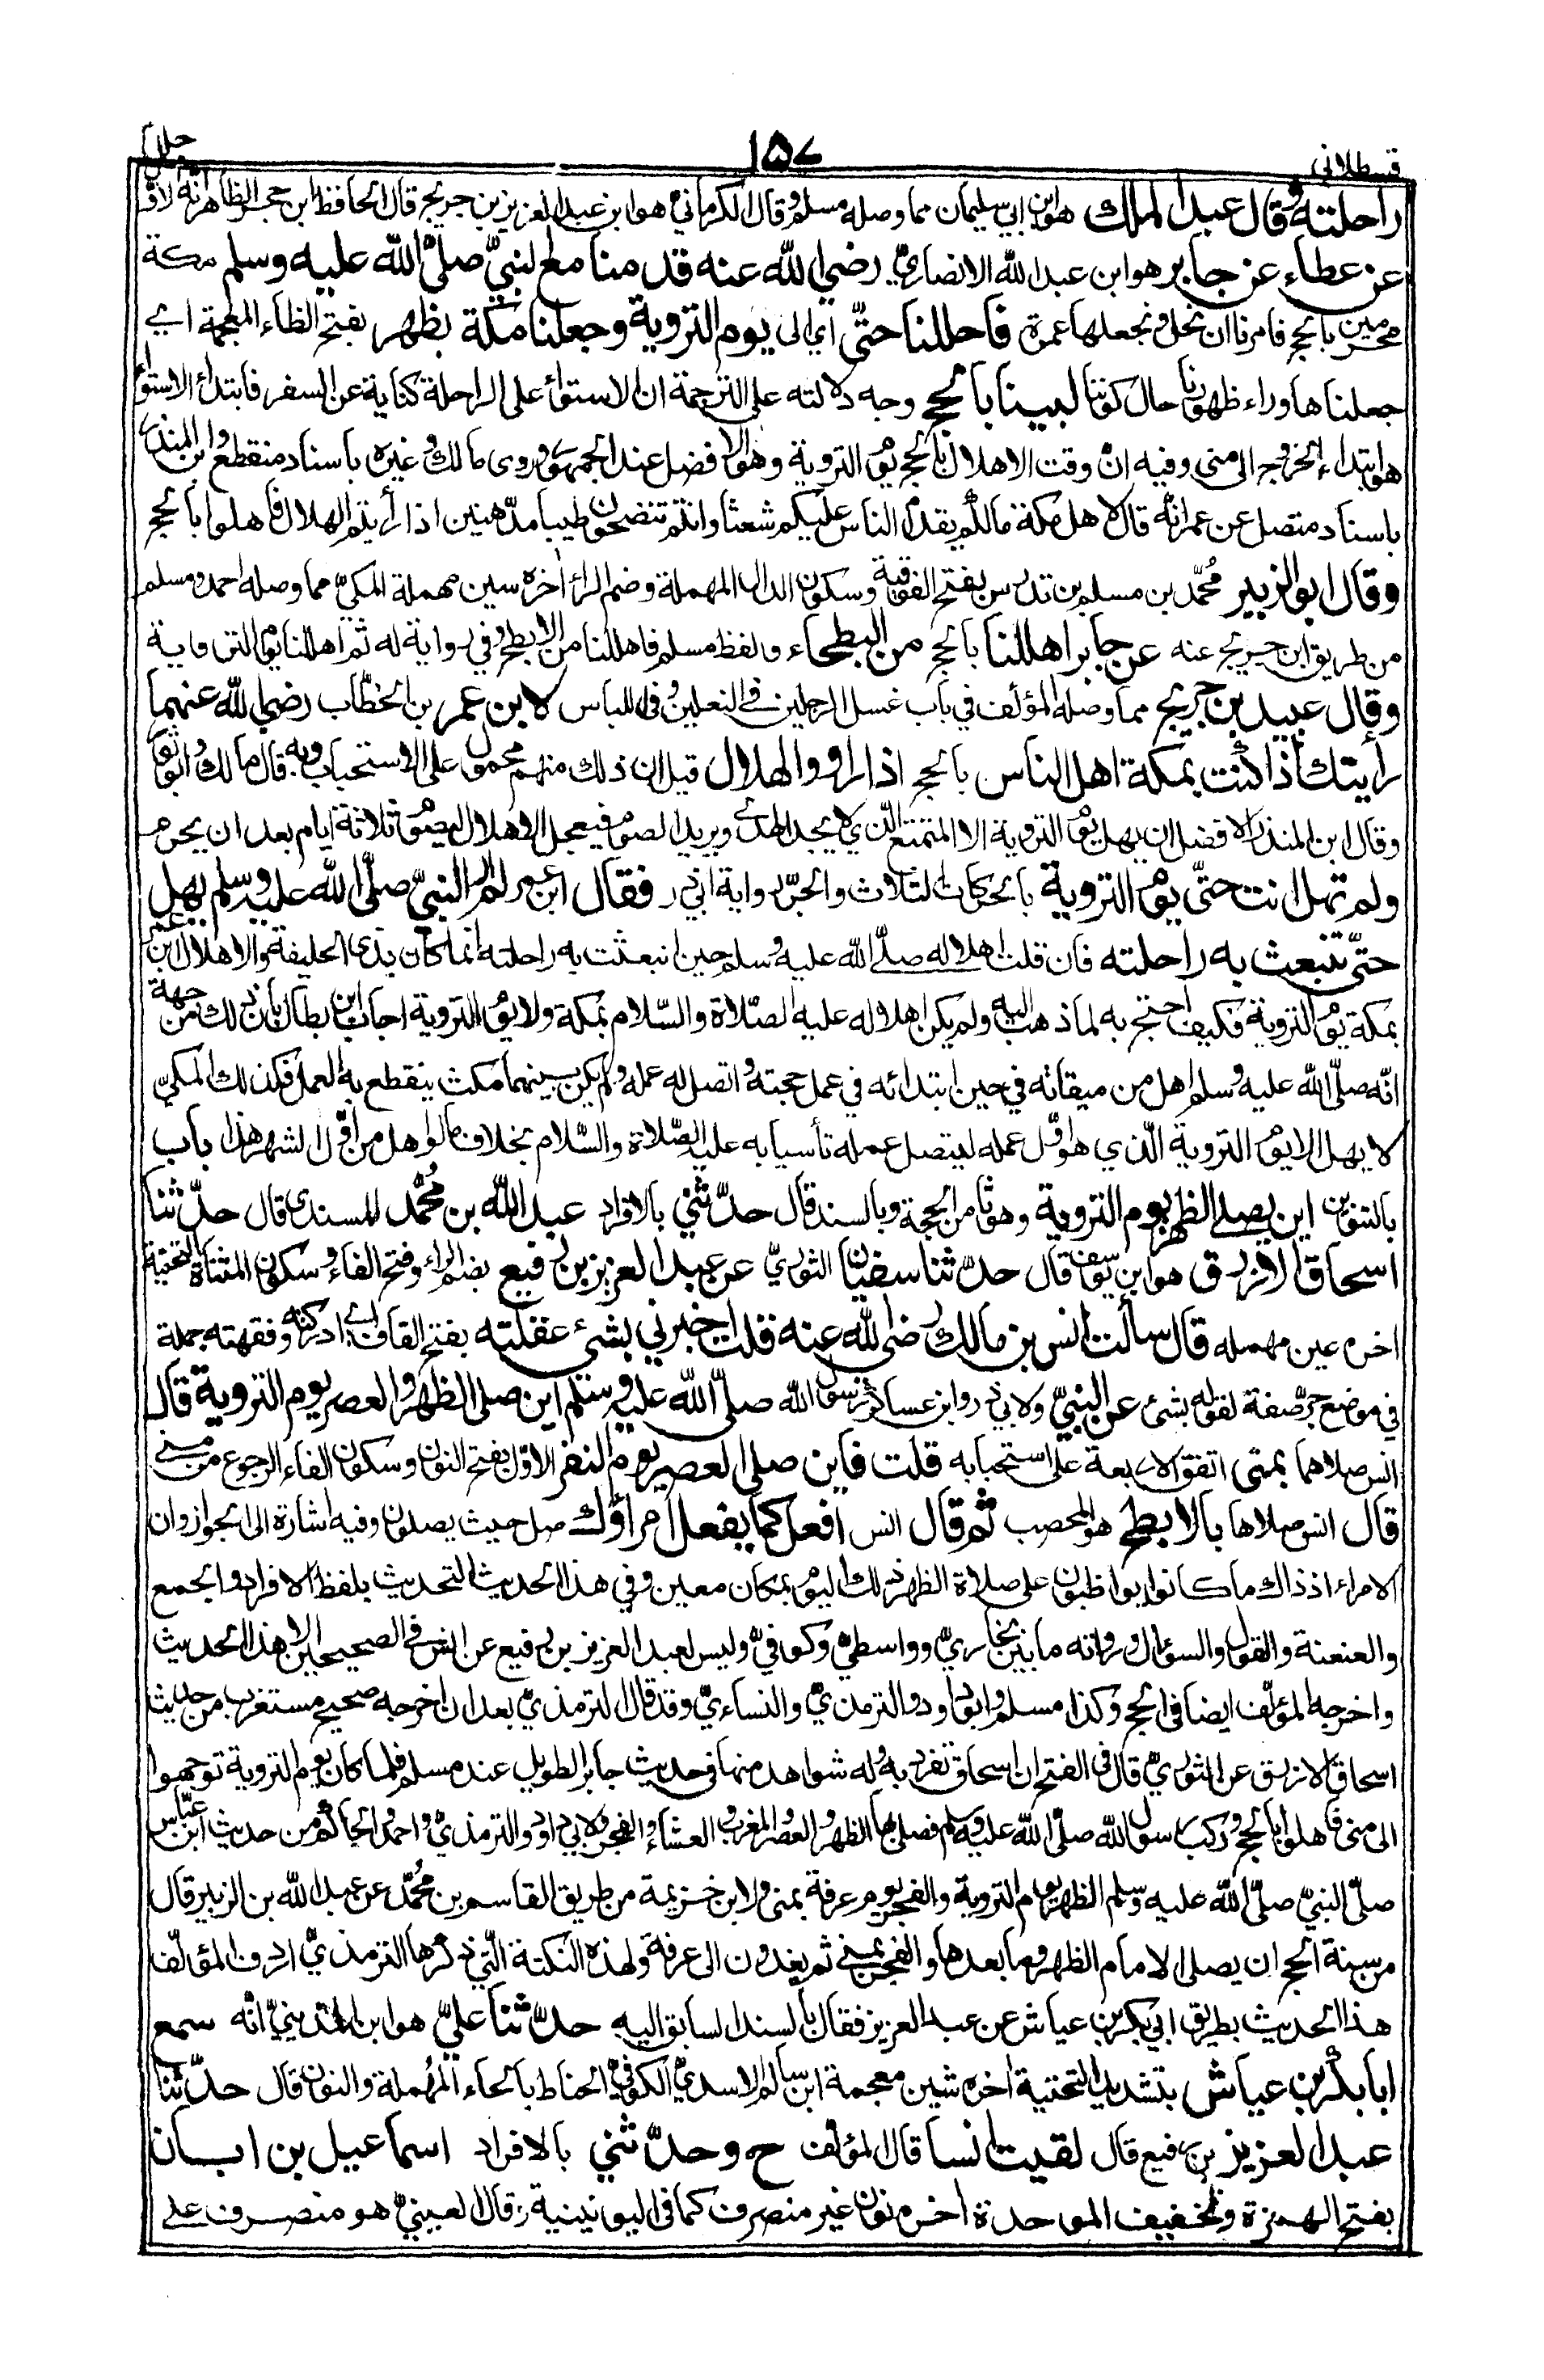 قسطلاني
١٥٧
راحلته وقال عبد الملك هو ابن ابي سليمان مما وصله مسلم وقال الكرماني هو ابن عبد العزيز بن جريج قال الحافظ ابن حجر والظاهر انه الاول
عن عطاء عن جابر هو ابن عبد الله الانصاري رضي الله عنه قدمنا مع النبي صلى الله عليه وسلم مكة
محرمين بالحج فامرنا ان نحل ونجعلها عمرة فاحللنا حتى اي الى يوم التروية وجعلنا مكة بظهر بفتح الظاء المعجمة اي
جعلناها وراء ظهورنا حال كوننا لبينا بالحج وجه دلالته على الترجمة ان الاستواء على الراحلة كناية عن السفر فابتداء الاستواء
هو ابتداء الخروج الى منى وفيه ان وقت الاهلال بالحج يوم التروية وهو الافضل عند الجمهور وروى مالك وغيره باسناد منقطع وابن المنذر
باسناد متصل عن عمر انه قال لاهل مكة مالكم يقدم الناس عليكم شعثا وانتم تنضحون طيبا مدهنين اذا رأيتم الهلال فاهلوا بالحج
وقال ابو الزبير محمد بن مسلم بن تدرس بفتح الفوقية وسكون الدال المهملة وضم الراء اخره سين مهملة المكي مما وصله احمد ومسلم
من طريق ابن جريج عنه عن جابر اهللنا بالحج من البطحاء ولفظ مسلم فاهللنا من الابطح وفي رواية له ثم اهللنا يوم التروية
وقال عبيد بن جريج مما وصله المؤلف في باب غسل الرجلين في النعلين وفي اللباس لابن عمر بن الخطاب رضي الله عنهما
رأيتك اذا كنت بمكة اهل الناس بالحج اذا راووا الهلال قيل ان ذلك منهم محمول على الاستحباب وبه قال مالك وابو ثور
وقال ابن المنذر الافضل ان يهل يوم التروية الا المتمتع الذي لا يجد الهدي ويريد الصوم فيعجل الاهلال ليصوم ثلاثة ايام بعد ان يحرم
ولم تهل انت حتى يوم التروية بالحركات الثلاث والجر رواية ابي ذر فقال ابن عمر لم ار النبي صلى الله عليه وسلم يهل
حتى تنبعث به راحلته فان قلت اهلاله صلى الله عليه وسلم حين انبعثت به راحلته انما كان بذي الحليفة والاهلال ابن عمر
بمكة يوم التروية فكيف احتج به لما ذهب اليه ولم يكن اهلاله عليه الصلاة والسلام بمكة ولا يوم التروية اجاب ابن بطال بان ذلك من جهة
انه صلى الله عليه وسلم اهل من ميقاته في حين ابتدائه في عمل حجته واتصل له عمله ولم يكن بينهما مكث ينقطع به العمل فكذلك المكي
لا يهل الا يوم التروية الذي هو اول عمله ليتصل عمله تأسيا به عليه الصلاة والسلام بخلاف ما لو اهل من اول الشهر هذا باب
بالتنوين اين يصلي الظهر يوم التروية وهو ثامن الحجة وبالسند قال حدثني بالافراد عبد الله بن محمد المسندي قال حدثنا
اسحاق الازرق هو ابن يوسف قال حدثنا سفيان الثوري عن عبد العزيز بن رفيع بضم الراء وفتح الفاء وسكون المثناة التحتية
اخره عين مهملة قال سألت انس بن مالك رضي الله عنه قلت اخبرني بشئ عقلته بفتح القاف اي ادركته وفقهته جملة
في موضع جر صفة لقوله بشئ عن النبي ولابي ذر وابن عساكر رسول الله صلى الله عليه وسلم اين صلى الظهر والعصر يوم التروية قال
انس صلاهما بمنى اتفق الاربعة على استحبابه قلت فاين صلى العصر يوم النفر الاول بفتح النون وسكون الفاء الرجوع من منى
قال انس صلاها بالابطح هو المحصب ثم قال انس افعل كما يفعل امراؤك صل حيث يصلون وفيه اشارة الى الجواز وان
الامراء اذ ذاك ما كانوا يواظبون على صلاة الظهر ذلك اليوم بمكان معين وفي هذا الحديث التحديث بلفظ الافراد والجمع
والعنعنة والقول والسؤال ورواته ما بين بخاري وواسطي وكوفي وليس لعبد العزيز بن رفيع عن انس في الصحيحين الا هذا الحديث
واخرجه المؤلف ايضا في الحج وكذا مسلم وابو داود والترمذي والنساءي وقد قال الترمذي بعد ان اخرجه صحيح مستغرب من حديث
اسحاق الازرق عن الثوري قال في الفتح ان اسحاق تفرد به وله شواهد منها في حديث جابر الطويل عند مسلم فلما كان يوم التروية توجهوا
الى منى فاهلوا بالحج وركب رسول الله صلى الله عليه وسلم فصلى بها الظهر والعصر والمغرب والعشاء والفجر ولابي داود والترمذي واحمد والحاكم من حديث ابن عباس
صلى النبي صلى الله عليه وسلم الظهر يوم التروية والفجر يوم عرفة بمنى ولابن خزيمة من طريق القاسم بن محمد عن عبد الله بن الزبير قال
من سنة الحج ان يصلي الامام الظهر وما بعدها والفجر بمنى ثم يغدون الى عرفة ولهذه النكتة التي ذكرها الترمذي اردف المؤلف
هذا الحديث بطريق ابي بكر بن عياش عن عبد العزيز فقال بالسند السابق اليه حدثنا علي هو ابن المديني انه سمع
ابا بكر بن عياش بتشديد التحتية اخره شين معجمة ابن سالم الاسدي الكوفي الحناط بالحاء المهملة والنون قال حدثنا
عبد العزيز بن رفيع قال لقيت انسا قال المؤلف ح وحدثني بالافراد اسماعيل بن ابان
بفتح الهمزة وتخفيف الموحدة اخره نون غير منصرف كما في اليونينية وقال العيني هو منصرف على